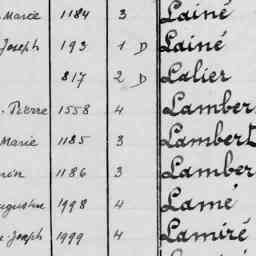 Marie 1184 3 Lainé
Joseph 193 1 D Lainé
817 2 D Lalier
Pierre 1558 4 Lamber
Marie 1185 3 Lambert
1186 3 Lamber
ugustine 1998 4 Lamé
Joseph 1999 4 Lamiré